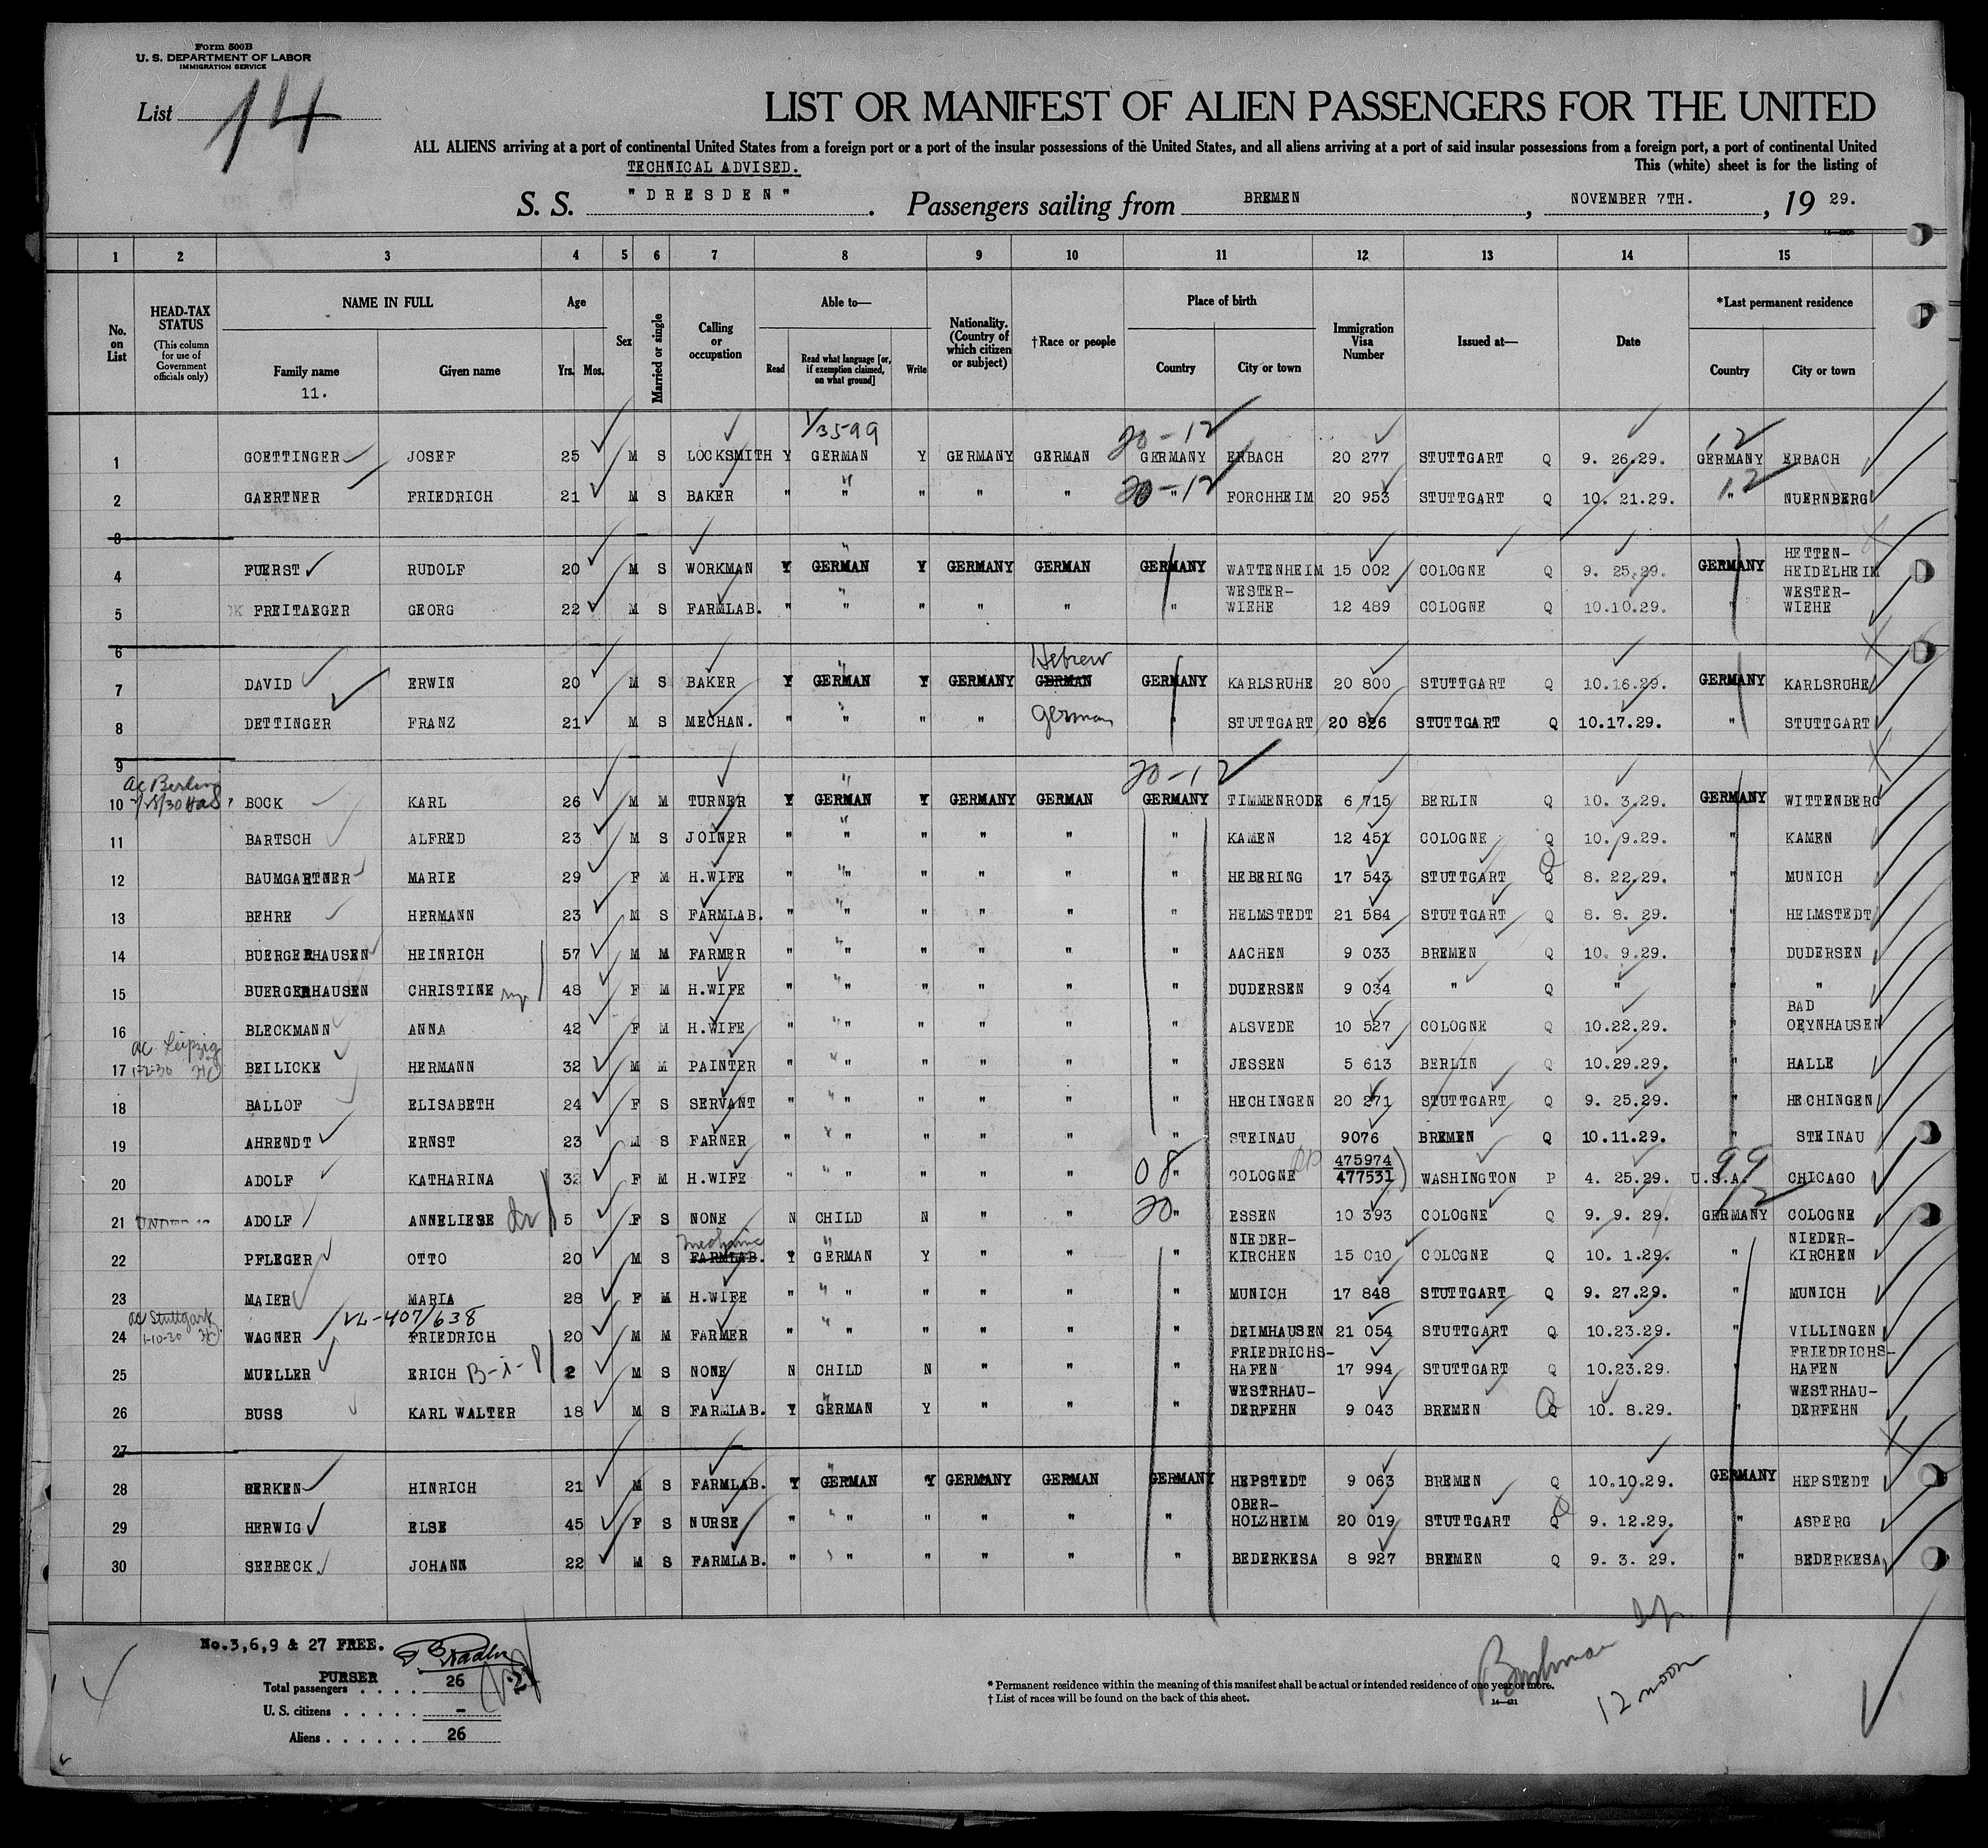 Form 500B
U. S. DEPARTMENT OF LABOR
IMMIGRATION SERVICE
List 14
LIST OR MANIFEST OF ALIEN PASSENGERS FOR THE UNITED
ALL ALIENS arriving at a port of continental United States from a foreign port or a port of the insular possessions of the United States, and all aliens arriving at a port of said insular possessions from a foreign port, a port of continental United
TECHNICAL ADVISED.
This (white) sheet is for the listing of
S. S. "DRESDEN". Passengers sailing from BREMEN, NOVEMBER 7TH., 19 29.
1 2 3 4 5 6 7 8 9 10 11 12 13 14 15
No. on List
HEAD-TAX STATUS
(This column for use of Government officials only)
NAME IN FULL
Family name
11.
Given name
Age
Yrs. Mos.
Sex
Married or single
Calling or occupation
Able to—
Read
Read what language [or, if exemption claimed, on what ground]
Write
Nationality. (Country of which citizen or subject)
†Race or people
Place of birth
Country
City or town
Immigration Visa Number
Issued at—
Date
*Last permanent residence
Country
City or town
1/3599 20-12 12
1 GOETTINGER JOSEF 25 M S LOCKSMITH Y GERMAN Y GERMANY GERMAN GERMANY ERBACH 20 277 STUTTGART Q 9. 26.29. GERMANY ERBACH
20-12 12
2 GAERTNER FRIEDRICH 21 M S BAKER " " " " " " FORCHHEIM 20 953 STUTTGART Q 10. 21.29. " NUERNBERG
3
4 FUERST RUDOLF 20 M S WORKMAN Y GERMAN Y GERMANY GERMAN GERMANY WATTENHEIM 15 002 COLOGNE Q 9. 25.29. GERMANY HETTEN-HEIDELHEIM
5 FREITAEGER GEORG 22 M S FARMLAB. " " " " " " WESTER-WIEHE 12 489 COLOGNE Q 10.10.29. " WESTER-WIEHE
6
Hebrew
7 DAVID ERWIN 20 M S BAKER Y GERMAN Y GERMANY GERMAN GERMANY KARLSRUHE 20 800 STUTTGART Q 10.16.29. GERMANY KARLSRUHE
8 DETTINGER FRANZ 21 M S MECHAN. " " " " German " STUTTGART 20 826 STUTTGART Q 10.17.29. " STUTTGART
9
ac Berlin 20-12
10 BOCK KARL 26 M M TURNER Y GERMAN Y GERMANY GERMAN GERMANY TIMMENRODE 6 715 BERLIN Q 10. 3.29. GERMANY WITTENBERG
11 BARTSCH ALFRED 23 M S JOINER " " " " " " KAMEN 12 451 COLOGNE Q 10. 9.29. " KAMEN
12 BAUMGARTNER MARIE 29 F M H.WIFE " " " " " " HEBERING 17 543 STUTTGART Q 8. 22.29. " MUNICH
13 BEHRE HERMANN 23 M S FARMLAB. " " " " " " HELMSTEDT 21 584 STUTTGART Q 8. 8. 29. " HELMSTEDT
14 BUERGERHAUSEN HEINRICH 57 M M FARMER " " " " " " AACHEN 9 033 BREMEN Q 10. 9.29. " DUDERSEN
15 BUERGERHAUSEN CHRISTINE 48 F M H.WIFE " " " " " " DUDERSEN 9 034 " Q " " "
16 BLECKMANN ANNA 42 F M H.WIFE " " " " " " ALSVEDE 10 527 COLOGNE Q 10.22.29. " BAD OEYNHAUSEN
ac Leipzig
17 1-2-30 BEILICKE HERMANN 32 M M PAINTER " " " " " " JESSEN 5 613 BERLIN Q 10.29.29. " HALLE
18 BALLOF ELISABETH 24 F S SERVANT " " " " " " HECHINGEN 20 271 STUTTGART Q 9. 25.29. " HECHINGEN
19 AHRENDT ERNST 23 M S FARNER " " " " " " STEINAU 9076 BREMEN Q 10.11.29. " STEINAU
08 475974 99
20 ADOLF KATHARINA 32 F M H.WIFE " " " " " " COLOGNE 477531 WASHINGTON P 4. 25.29. U.S.A. CHICAGO
20 12
21 ADOLF ANNELIESE 5 F S NONE N CHILD N " " " ESSEN 10 393 COLOGNE Q 9. 9. 29. GERMANY COLOGNE
mechanic
22 PFLEGER OTTO 20 M S FARMLAB. Y GERMAN Y " " " NIEDER-KIRCHEN 15 010 COLOGNE Q 10. 1.29. " NIEDER-KIRCHEN
23 MAIER MARIA 28 F M H.WIFE " " " " " " MUNICH 17 848 STUTTGART Q 9. 27.29. " MUNICH
ac Stuttgart VL-407/638
24 1-10-30 WAGNER FRIEDRICH 20 M M FARMER " " " " " " DEIMHAUSEN 21 054 STUTTGART Q 10.23.29. " VILLINGEN
25 MUELLER ERICH B-i-P 2 M S NONE N CHILD N " " " FRIEDRICHS-HAFEN 17 994 STUTTGART Q 10.23.29. " FRIEDRICHS-HAFEN
26 BUSS KARL WALTER 18 M S FARMLAB. Y GERMAN Y " " " WESTRHAU-DERFEHN 9 043 BREMEN Q 10. 8.29. " WESTRHAU-DERFEHN
27
28 GERKEN HINRICH 21 M S FARMLAB. Y GERMAN Y GERMANY GERMAN GERMANY HEPSTEDT 9 063 BREMEN Q 10.10.29. GERMANY HEPSTEDT
29 HERWIG ELSE 45 F S NURSE " " " " " " OBER-HOLZHEIM 20 019 STUTTGART Q 9. 12.29. " ASPERG
30 SEEBECK JOHANN 22 M S FARMLAB. " " " " " " BEDERKESA 8 927 BREMEN Q 9. 3. 29. " BEDERKESA
No.3,6,9 & 27 FREE.
PURSER
Total passengers . . . . 26
U. S. citizens . . . . . -
Aliens . . . . . . 26
* Permanent residence within the meaning of this manifest shall be actual or intended residence of one year or more.
† List of races will be found on the back of this sheet.
Bushman
12 noon